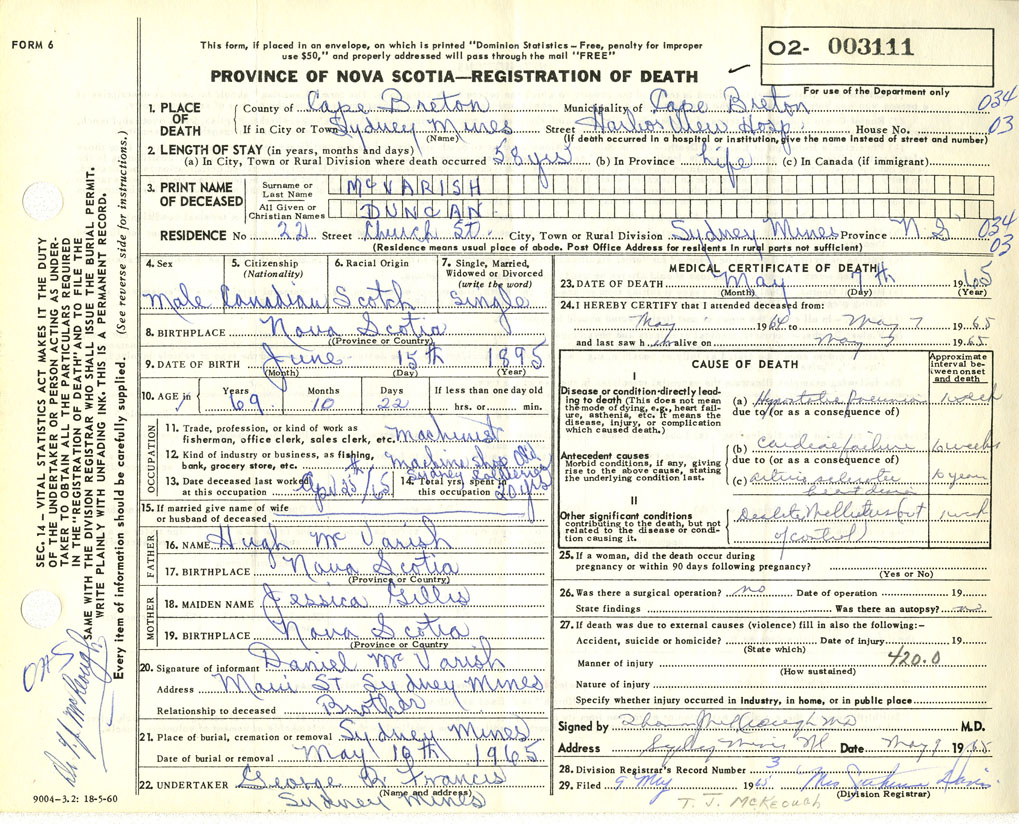 FORM 6
This form, if placed in an envelope, on which is printed "Dominion Statistics – Free, penalty for improper
use $50," and properly addressed will pass through the mail "FREE"
PROVINCE OF NOVA SCOTIA—REGISTRATION OF DEATH
O2- 003111
For use of the Department only
034
03
1. PLACE OF DEATH
County of Cape Breton Municipality of Cape Breton
If in City or Town Sydney Mines Street Harbor View Hosp House No.
(Name) (If death occurred in a hospital or institution, give the name instead of street and number)
2. LENGTH OF STAY (in years, months and days)
(a) In City, Town or Rural Division where death occurred 58 yrs (b) In Province Life (c) In Canada (if immigrant)
3. PRINT NAME OF DECEASED
Surname or Last Name McVARISH
All Given or Christian Names DUNCAN
RESIDENCE No 22 Street Church St. City, Town or Rural Division Sydney Mines Province N S
(Residence means usual place of abode. Post Office Address for residents in rural parts not sufficient)
034
03
4. Sex Male
5. Citizenship (Nationality) Canadian
6. Racial Origin Scotch
7. Single, Married, Widowed or Divorced (write the word) Single
8. BIRTHPLACE Nova Scotia
(Province or Country)
9. DATE OF BIRTH June 15th 1895
(Month) (Day) (Year)
10. AGE in Years 69 Months 10 Days 22 If less than one day old hrs. or min.
OCCUPATION
11. Trade, profession, or kind of work as
fisherman, office clerk, sales clerk, etc. Machinist
12. Kind of industry or business, as fishing,
bank, grocery store, etc. Machine shop Old
13. Date deceased last worked at this occupation 25th /65
14. Total yrs. spent in this occupation 20 yrs
15. If married give name of wife
or husband of deceased
FATHER
16. NAME Hugh Mc Varish
17. BIRTHPLACE Nova Scotia
(Province or Country)
MOTHER
18. MAIDEN NAME Jessica Gillis
19. BIRTHPLACE Nova Scotia
(Province or Country
20. Signature of informant Daniel Mc Varish
Address Main St Sydney Mines
Relationship to deceased Brother
21. Place of burial, cremation or removal Sydney Mines
Date of burial or removal May 10th 1965
22. UNDERTAKER George B. Francis
(Name and address)
Sydney Mines
9004-3.2: 18-5-60
MEDICAL CERTIFICATE OF DEATH
23. DATE OF DEATH May 7th 1965
(Month) (Day) (Year)
24. I HEREBY CERTIFY that I attended deceased from:
May 1964 to May 7 1965
and last saw h im alive on May 7 1965
CAUSE OF DEATH
Approximate interval between onset and death
I
Disease or condition directly leading to death (This does not mean the mode of dying, e.g., heart failure, asthenia, etc. It means the disease, injury, or complication which caused death.)
(a) Hypostatic Pneumonia 1 week
due to (or as a consequence of)
Antecedent causes
Morbid conditions, if any, giving rise to the above cause, stating the underlying condition last.
(b) Cardiac failure 6 weeks
due to (or as a consequence of)
(c) Arterio sclerotic heart disease 10 years
II
Other significant conditions
contributing to the death, but not related to the disease or condition causing it.
Diabetes Mellitus (out of control) 1 week
25. If a woman, did the death occur during
pregnancy or within 90 days following pregnancy?
(Yes or No)
26. Was there a surgical operation? no Date of operation 19
State findings Was there an autopsy? no
27. If death was due to external causes (violence) fill in also the following:-
Accident, suicide or homicide? Date of injury 19
(State which)
Manner of injury 420.0
(How sustained)
Nature of injury
Specify whether injury occurred in industry, in home, or in public place
Signed by M.D.
Address Sydney Mines Date May 9 1965
28. Division Registrar's Record Number 3
29. Filed 9 May 1965 Mrs Davis
(Division Registrar)
T. J. McKEOUGH
SEC. 14 – VITAL STATISTICS ACT MAKES IT THE DUTY
OF THE UNDERTAKER OR PERSON ACTING AS UNDER-
TAKER TO OBTAIN ALL THE PARTICULARS REQUIRED
IN THE "REGISTRATION OF DEATH" AND TO FILE THE
SAME WITH THE DIVISION REGISTRAR WHO SHALL ISSUE THE BURIAL PERMIT.
WRITE PLAINLY WITH UNFADING INK. THIS IS A PERMANENT RECORD.
Every item of information should be carefully supplied. (See reverse side for instructions.)
Dr T. J. McKeough